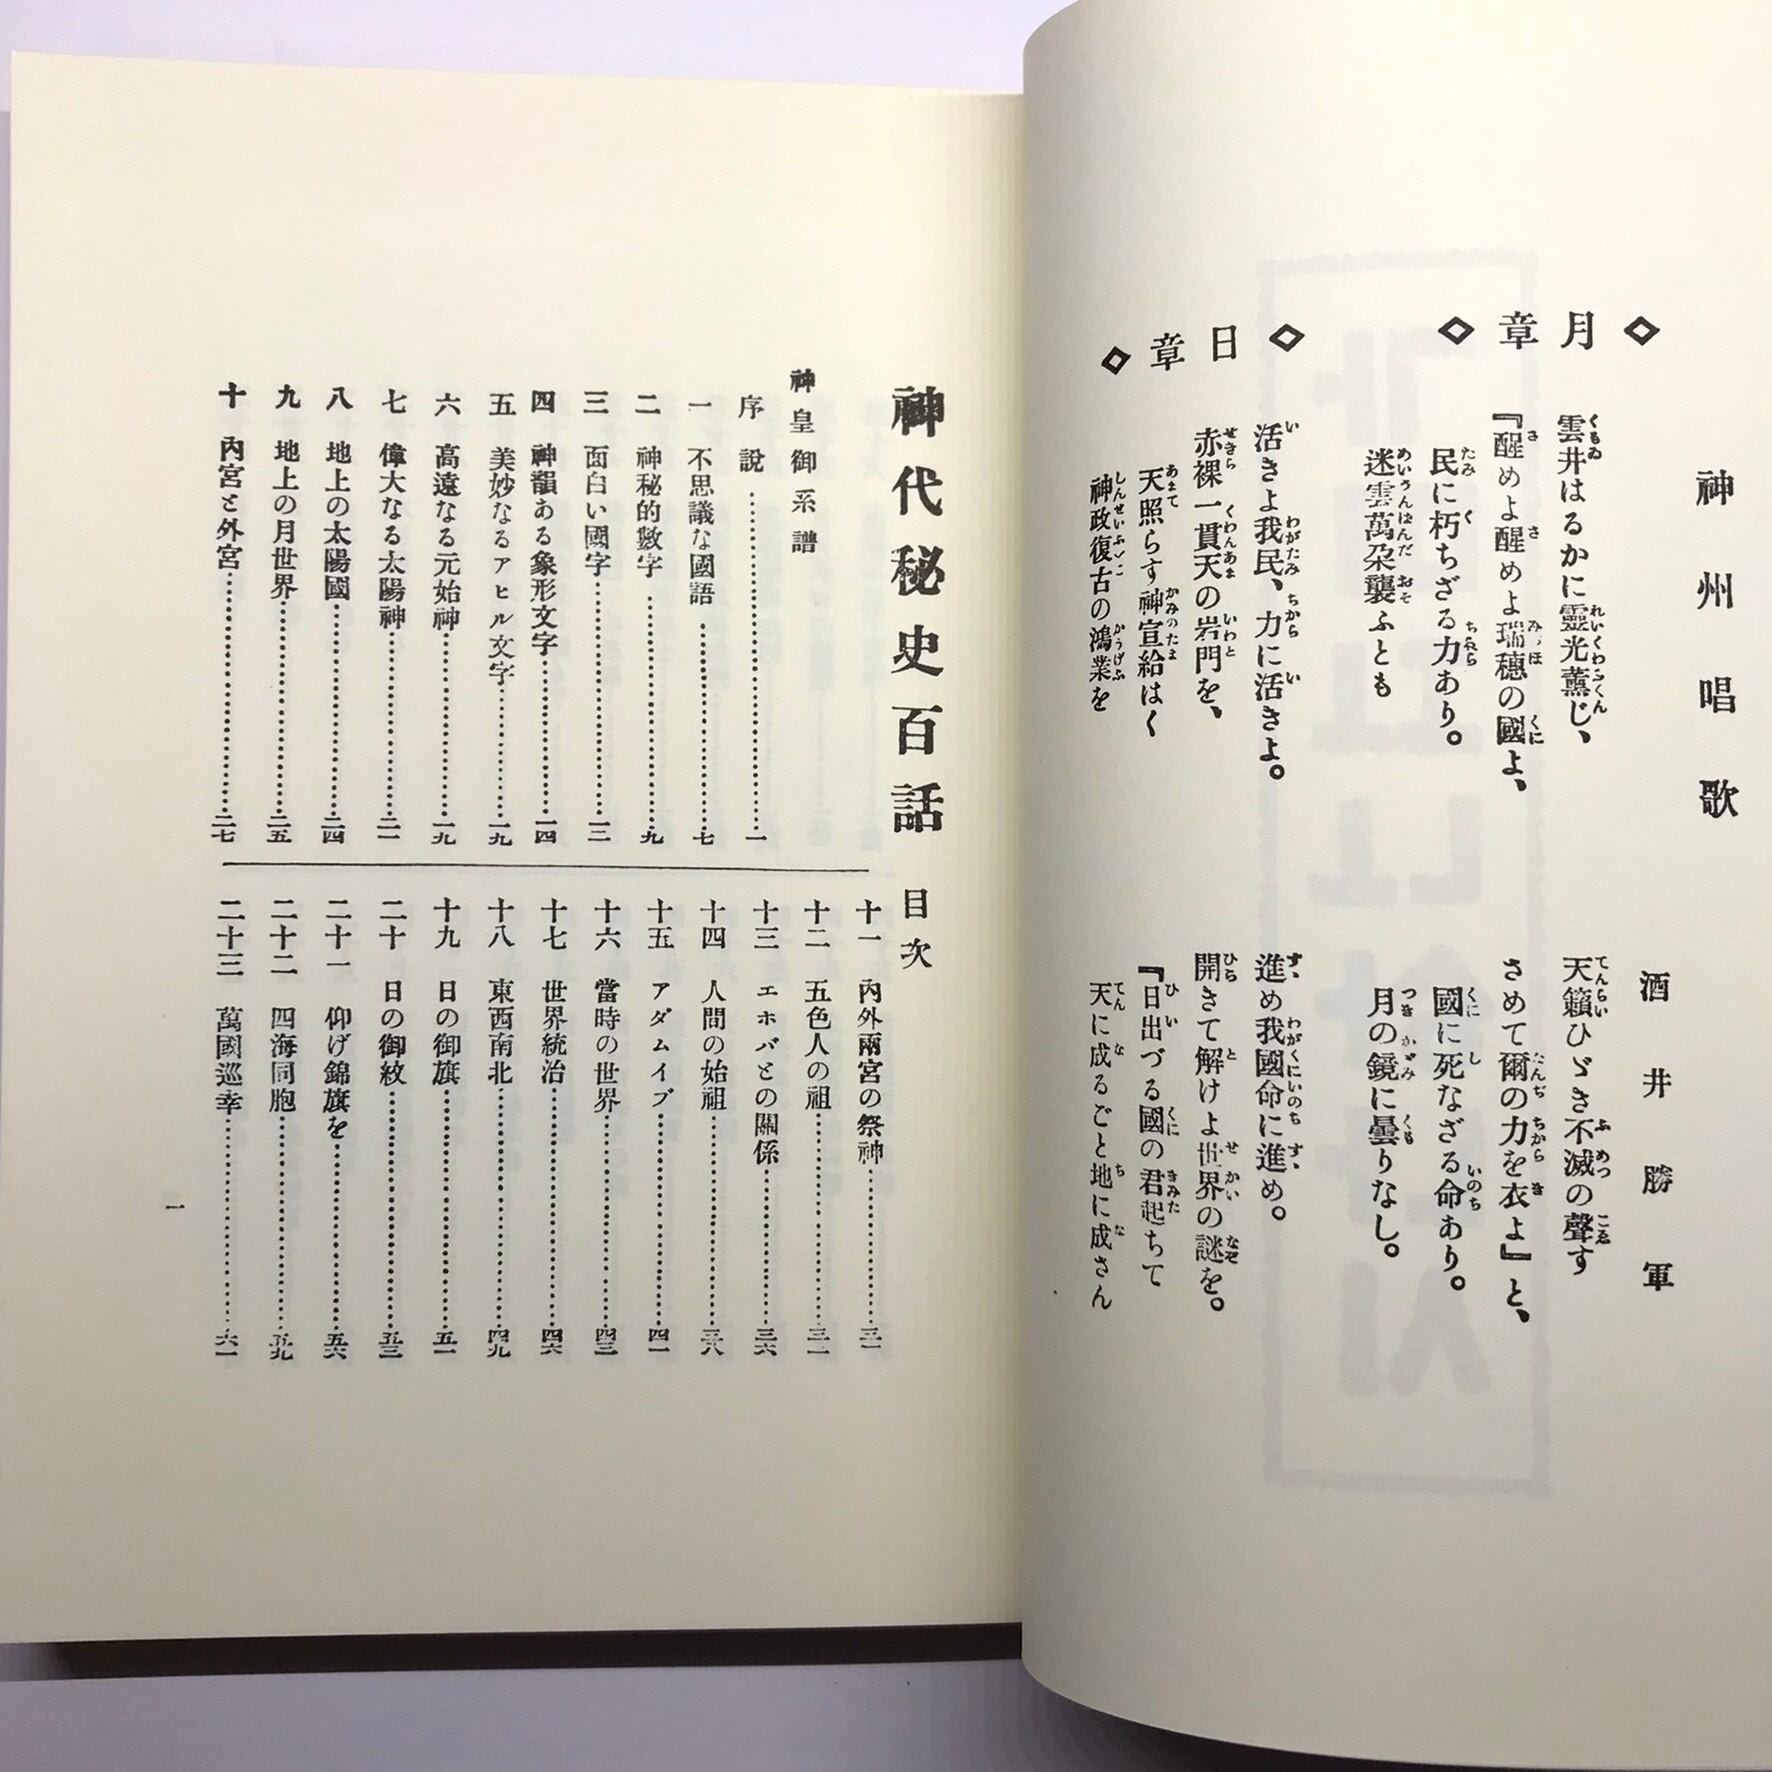 神州唱歌
酒井勝軍
◇月章◇
雲井はるかに靈光薫じ、
天籟ひゞき不滅の聲す
『醒めよ醒めよ瑞穗の國よ、
さめて爾の力を衣よ』と、
民に朽ちざる力あり。
國に死なざる命あり。
迷雲萬朶襲ふとも
月の鏡に曇りなし。
◇日章◇
活きよ我民、力に活きよ。
進め我國命に進め。
赤裸一貫天の岩門を、
開きて解けよ世界の謎を。
天照らす神宣給はく
『日出づる國の君起ちて
神政復古の鴻業を
天に成るごと地に成さん
神代秘史百話 目次
神皇御系譜
序說……一
一 不思議な國語……七
二 神秘的數字……九
三 面白い國字……一二
四 神韻ある象形文字……一四
五 美妙なるアヒル文字……一九
六 高遠なる元始神……一九
七 偉大なる太陽神……二一
八 地上の太陽國……二四
九 地上の月世界……二五
十 內宮と外宮……二七
十一 內外兩宮の祭神……三一
十二 五色人の祖……三二
十三 エホバとの關係……三六
十四 人間の始祖……三八
十五 アダムイブ……四一
十六 當時の世界……四三
十七 世界統治……四六
十八 東西南北……四九
十九 日の御旗……五一
二十 日の御紋……五三
二十一 仰げ錦旗を……五六
二十二 四海同胞……五九
二十三 萬國巡幸……六一
一